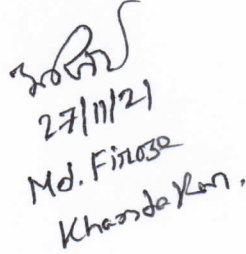 27/11/21
Md. Firose
Khandakar.